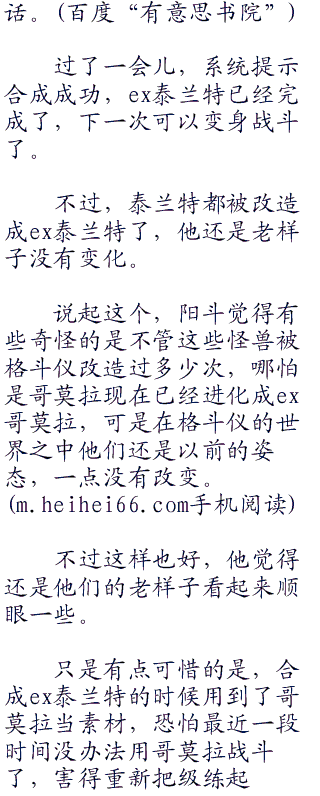 话。(百度“有意思书院”)
过了一会儿，系统提示
合成成功，ex泰兰特已经完
成了，下一次可以变身战斗
了。
不过，泰兰特都被改造
成ex泰兰特了，他还是老样
子没有变化。
说起这个，阳斗觉得有
些奇怪的是不管这些怪兽被
格斗仪改造过多少次，哪怕
是哥莫拉现在已经进化成ex
哥莫拉，可是在格斗仪的世
界之中他们还是以前的姿
态，一点没有改变。
(m.heihei66.com手机阅读)
不过这样也好，他觉得
还是他们的老样子看起来顺
眼一些。
只是有点可惜的是，合
成ex泰兰特的时候用到了哥
莫拉当素材，恐怕最近一段
时间没办法用哥莫拉战斗
了，害得重新把级练起